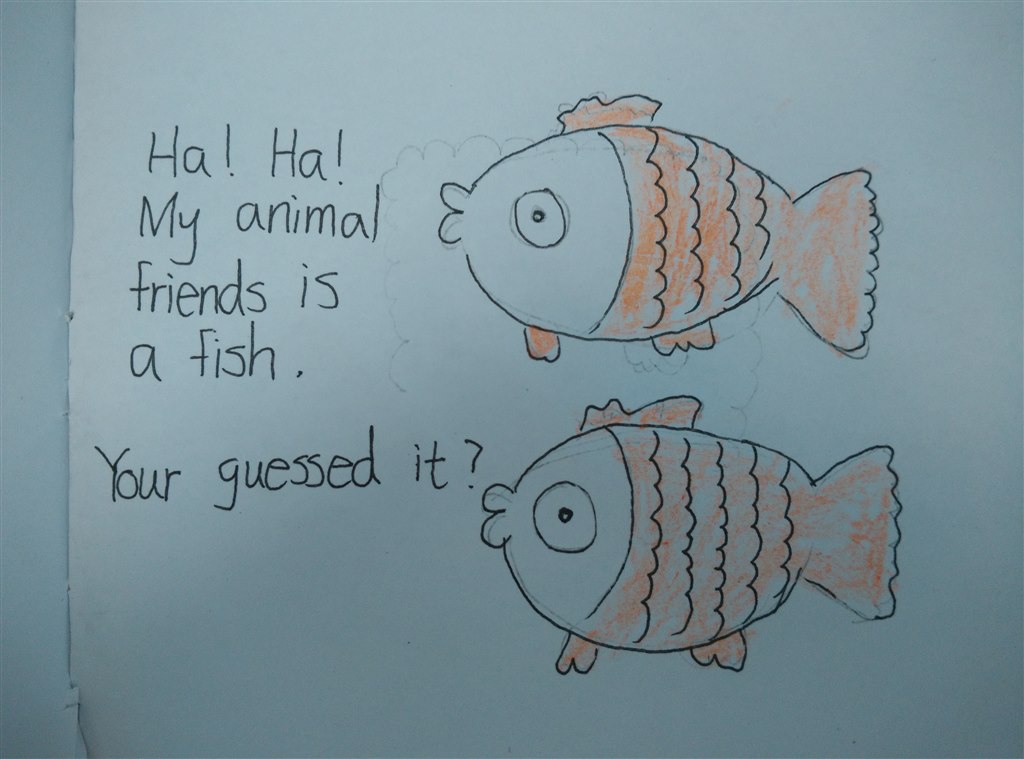 Ha! Ha!
My animal
friends is
a fish.
Your guessed it?